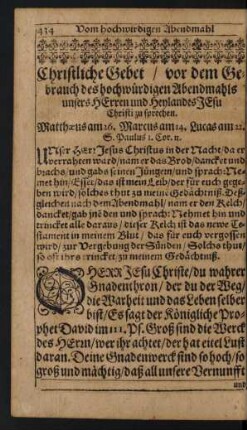 434 Vom hochwirdigen Abendmahl
Christliche Gebet / vor dem Ge
brauch des hochwürdigen Abendmahls
unsers HErren und Heylandes JEsu
Christi zu sprechen.
Matthæus am 26. Marcus am 14. Lucas am 22.
S. Paulus 1. Cor. 11.
UNser HErr Jesus Christus in der Nacht / da er
verrahten ward / nam er das Brod / dancket und
brachs / und gabs seinen Jüngern / und sprach: Ne-
met hin / Esset / das ist mein Leib / der für euch gege-
ben wird / solches thut zu meiner Gedächtniß. Deß-
gleichen nach dem Abendmahl / nam er den Kelch /
dancket / gab jhn den und sprach: Nehmet hin und
trincket alle daraus / dieser Kelch ist das newe Te-
stament in meinem Blut / das für euch vergossen
wird / zur Vergebung der Sünden / Solchs thut /
so offt jhrs trincket zu meinem Gedächtniß.
O HERR JEsu Christe / du wahrer
Gnadenthron / der du der Weg /
die Warheit und das Leben selber
bist / Es sagt der Königliche Pro-
phet David im 111. Ps. Groß sind die Werck
des HErrn / wer ihr achtet / der hat eitel Lust
daran. Deine Gnadenwerck sind so hoch / so
groß und mächtig / daß all unsere Vernunfft
und